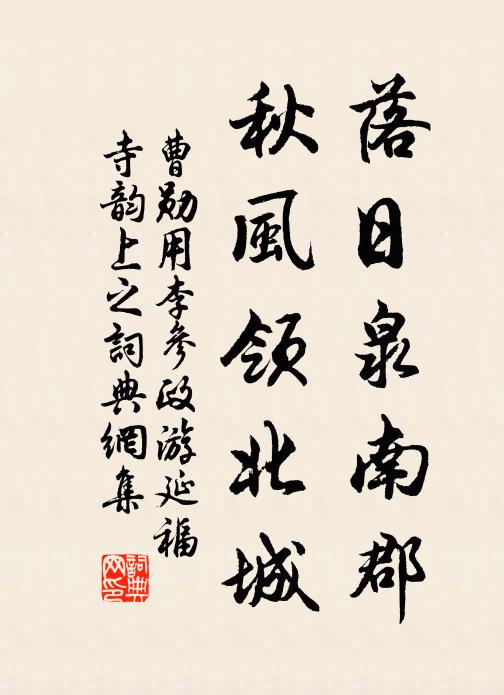 落日泉南郡
秋風領北城
曹勛用李參政游延福
寺韵上之詞典網集
詞典
网印